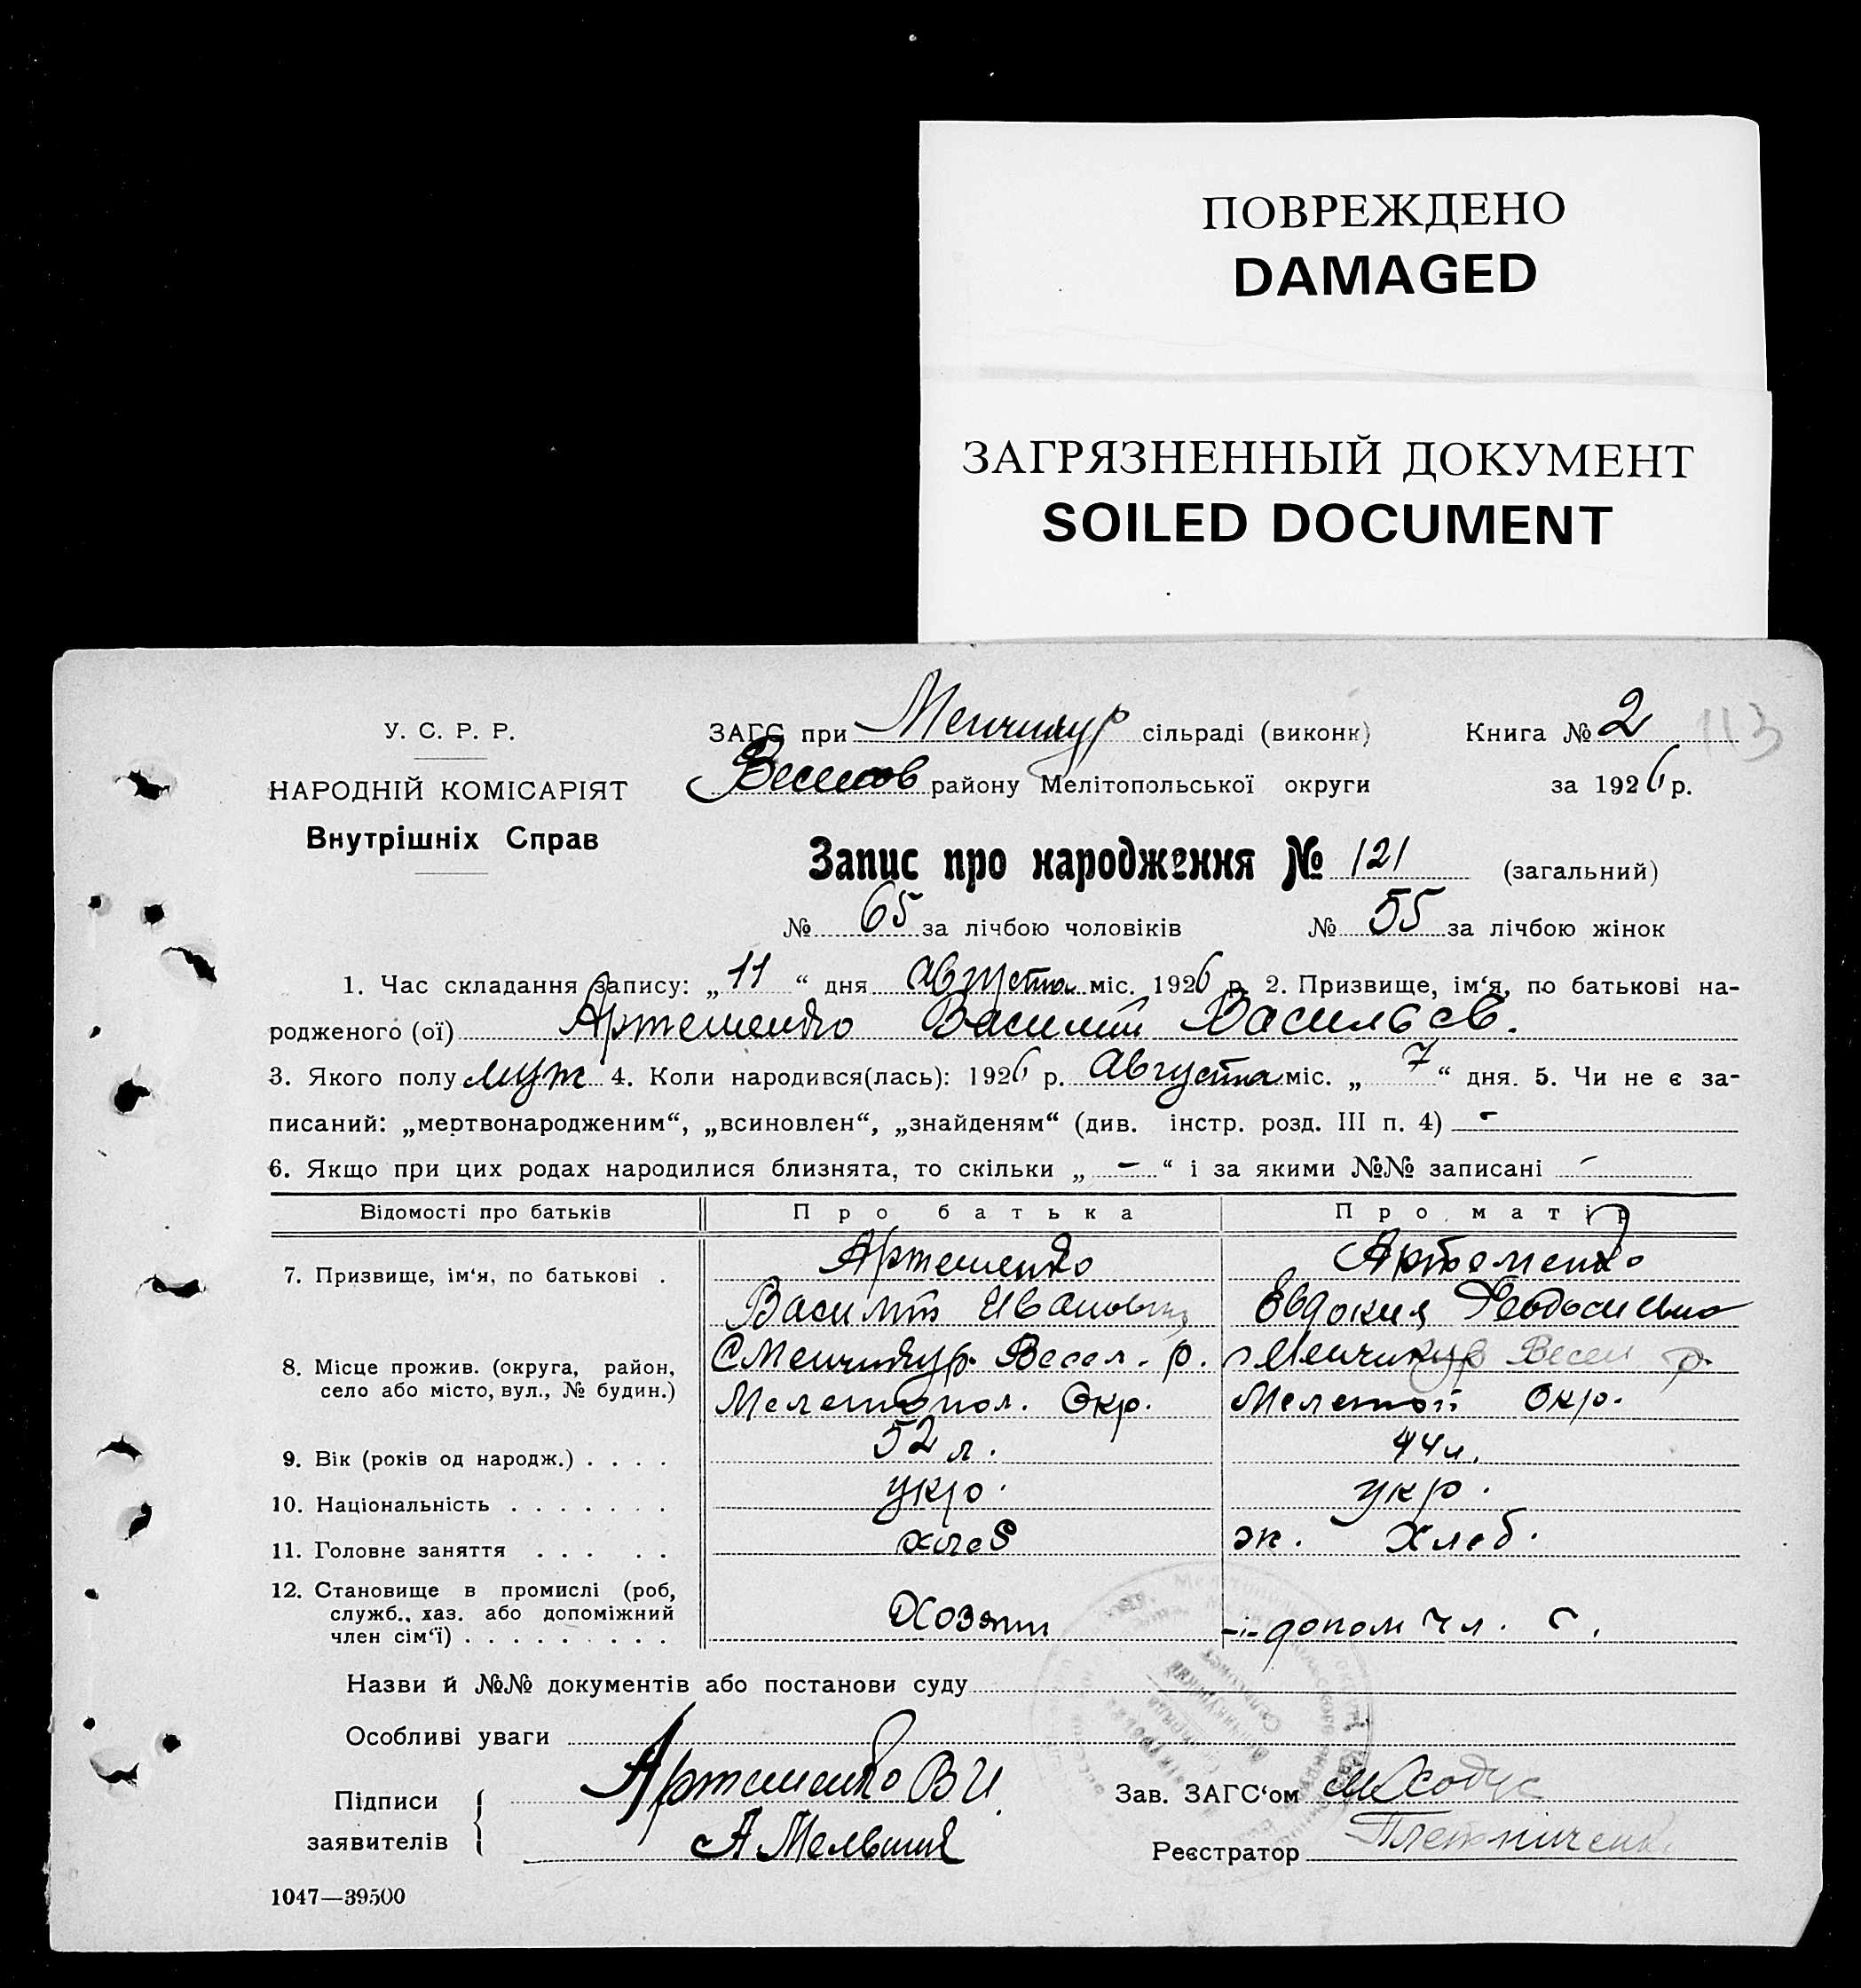 ПОВРЕЖДЕНО
DAMAGED
ЗАГРЯЗНЕННЫЙ ДОКУМЕНТ
SOILED DOCUMENT
У. С. Р. Р.
НАРОДНІЙ КОМІСАРІЯТ
Внутрішніх Справ
ЗАГС при Менчикур сільраді (виконк)
Книга № 2
113
Весел​ов району Мелітопольської округи
за 1926 р.
Запис про народження № 121 (загальний)
№ 65 за лічбою чоловіків № 55 за лічбою жінок
1. Час складання запису: „11“ дня августа міс. 1926 р. 2. Призвище, ім‘я, по батькові на-
родженого (ої) Артеменко Василий Васильев.
3. Якого полу муж 4. Коли народився(лась): 1926 р. Августа міс. „7“ дня. 5. Чи не є за-
писаний: „мертвонародженим“, „всиновлен“, „знайденям“ (див. інстр. розд. III п. 4) -
6. Якщо при цих родах народилися близнята, то скільки „-“ і за якими №№ записані -
Відомості про батьків Про батька Про матір
7. Призвище, ім‘я, по батькові . Артеменко Артеменко
Василий Иванович Евдокия Феодосиевна
8. Місце прожив. (округа, район, С Менчикур. Весел. р. с Менчикур Весел р.
село або місто, вул., № будин.)
Мелетопол. Окр. Мелетоп Окр.
9. Вік (років од народж.) . . . . 52 л. 44 л.
10. Національність . . . . . . . укр. укр.
11. Головне заняття . . . . . хлеб эк. Хлеб.
12. Становище в промислі (роб,
служб., хаз. або допоміжний Хозяин допом чл. С.
член сім‘ї) . . . . . . . . .
Назви й №№ документів або постанови суду
Особливі уваги
Підписи Артеменко В И
заявителів
Зав. ЗАГС‘ом
Реєстратор
1047—39500